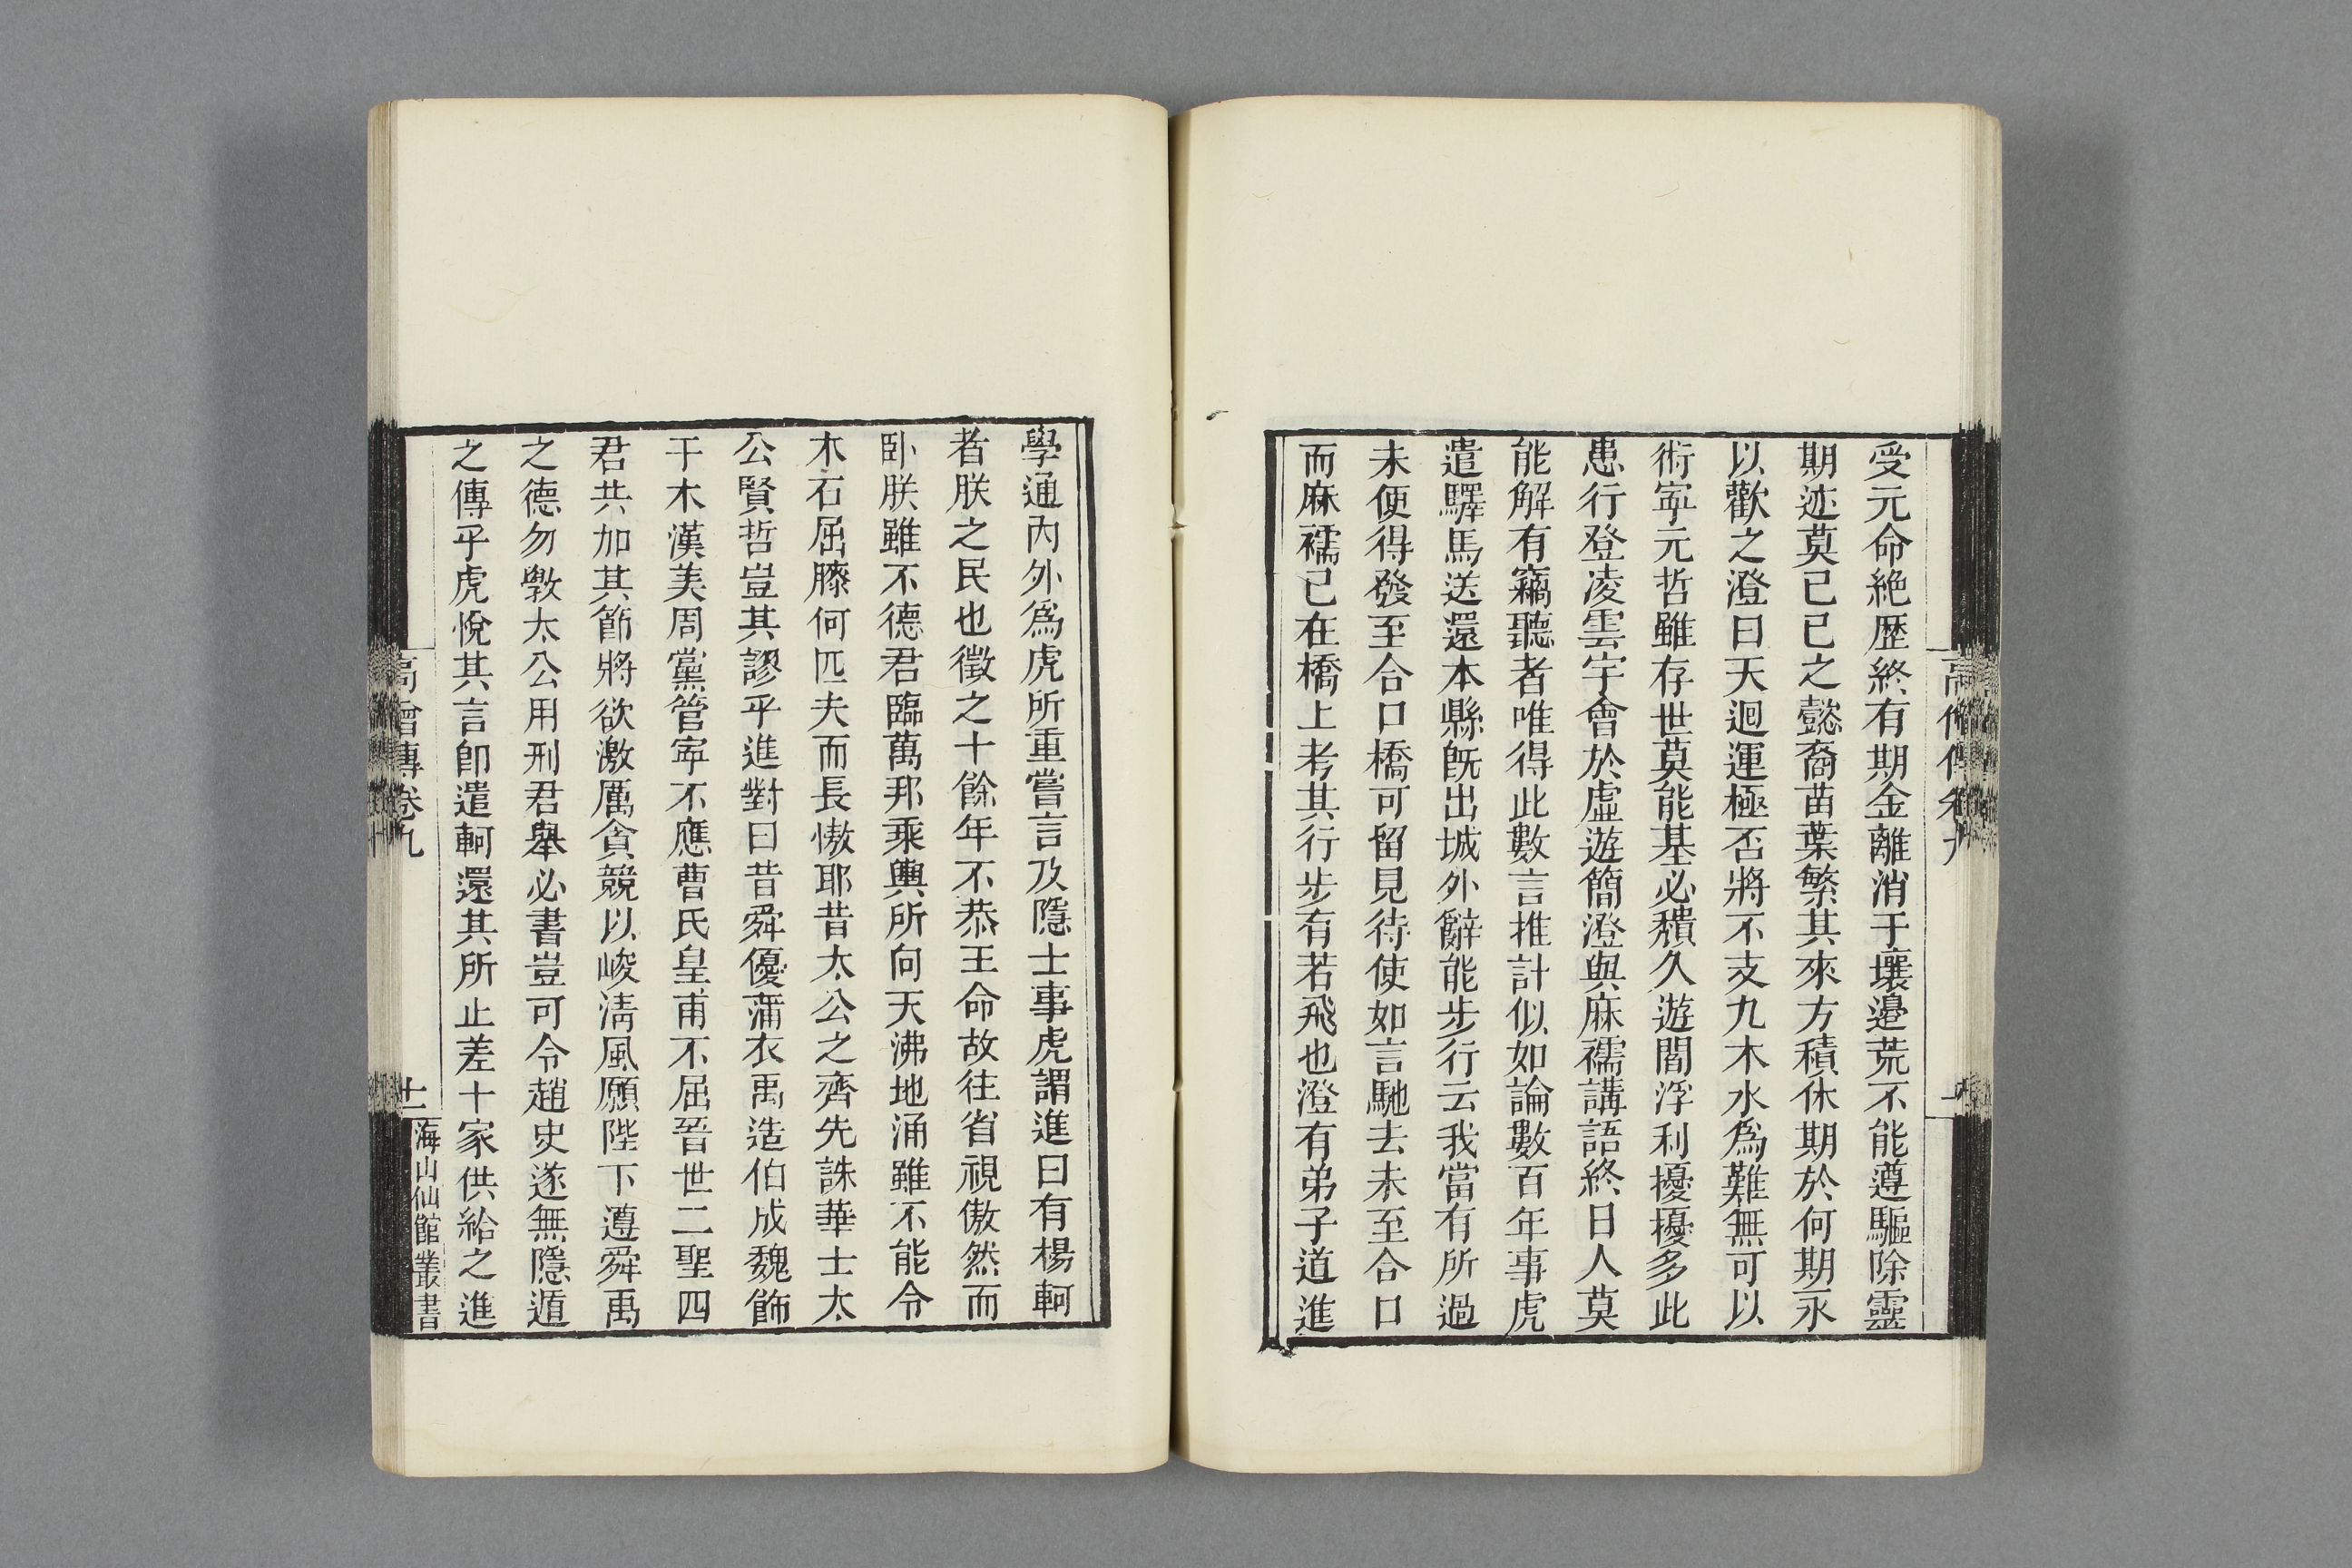 受元命絶歷終有期金離消于壤邉荒不能遵驅除靈
期迹莫已已之懿裔苗葉繁其來方積休期於何期永
以歡之澄曰天迴運極否將不支九木水爲難無可以
術寜元哲雖存世莫能基必穨久遊閻浮利擾擾多此
患行登凌雲宇會於虛遊簡澄與麻襦講語終日人莫
能解有竊聽者唯得此數言推計似如論數百年事虎
遣驛馬送還本縣旣出城外辭能步行云我當有所過
未便得發至合口橋可留見待使如言馳去未至合口
而麻襦已在橋上考其行步有若飛也澄有弟子道進
學通內外爲虎所重嘗言及隱士事虎謂進曰有楊軻
者朕之民也徵之十餘年不恭王命故往省視傲然而
臥朕雖不德君臨萬邦乘輿所向天沸地涌雖不能令
木石屈膝何匹夫而長慠耶昔太公之齊先誅華士太
公賢哲豈其謬乎進對曰昔舜優蒲衣禹造伯成魏飾
干木漢美周黨管寜不應曹氏皇甫不屈晉世二聖四
君共加其節將欲激厲貪競以峻淸風願陛下遵舜禹
之德勿斆太公用刑君舉必書豈可令趙史遂無隱遁
之傳乎虎悅其言卽遣軻還其所止差十家供給之進
高僧傳卷九
十一
海山仙館叢書